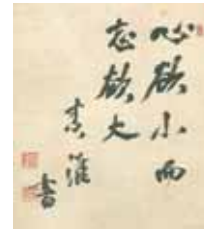 心欲小而
志欲大
書